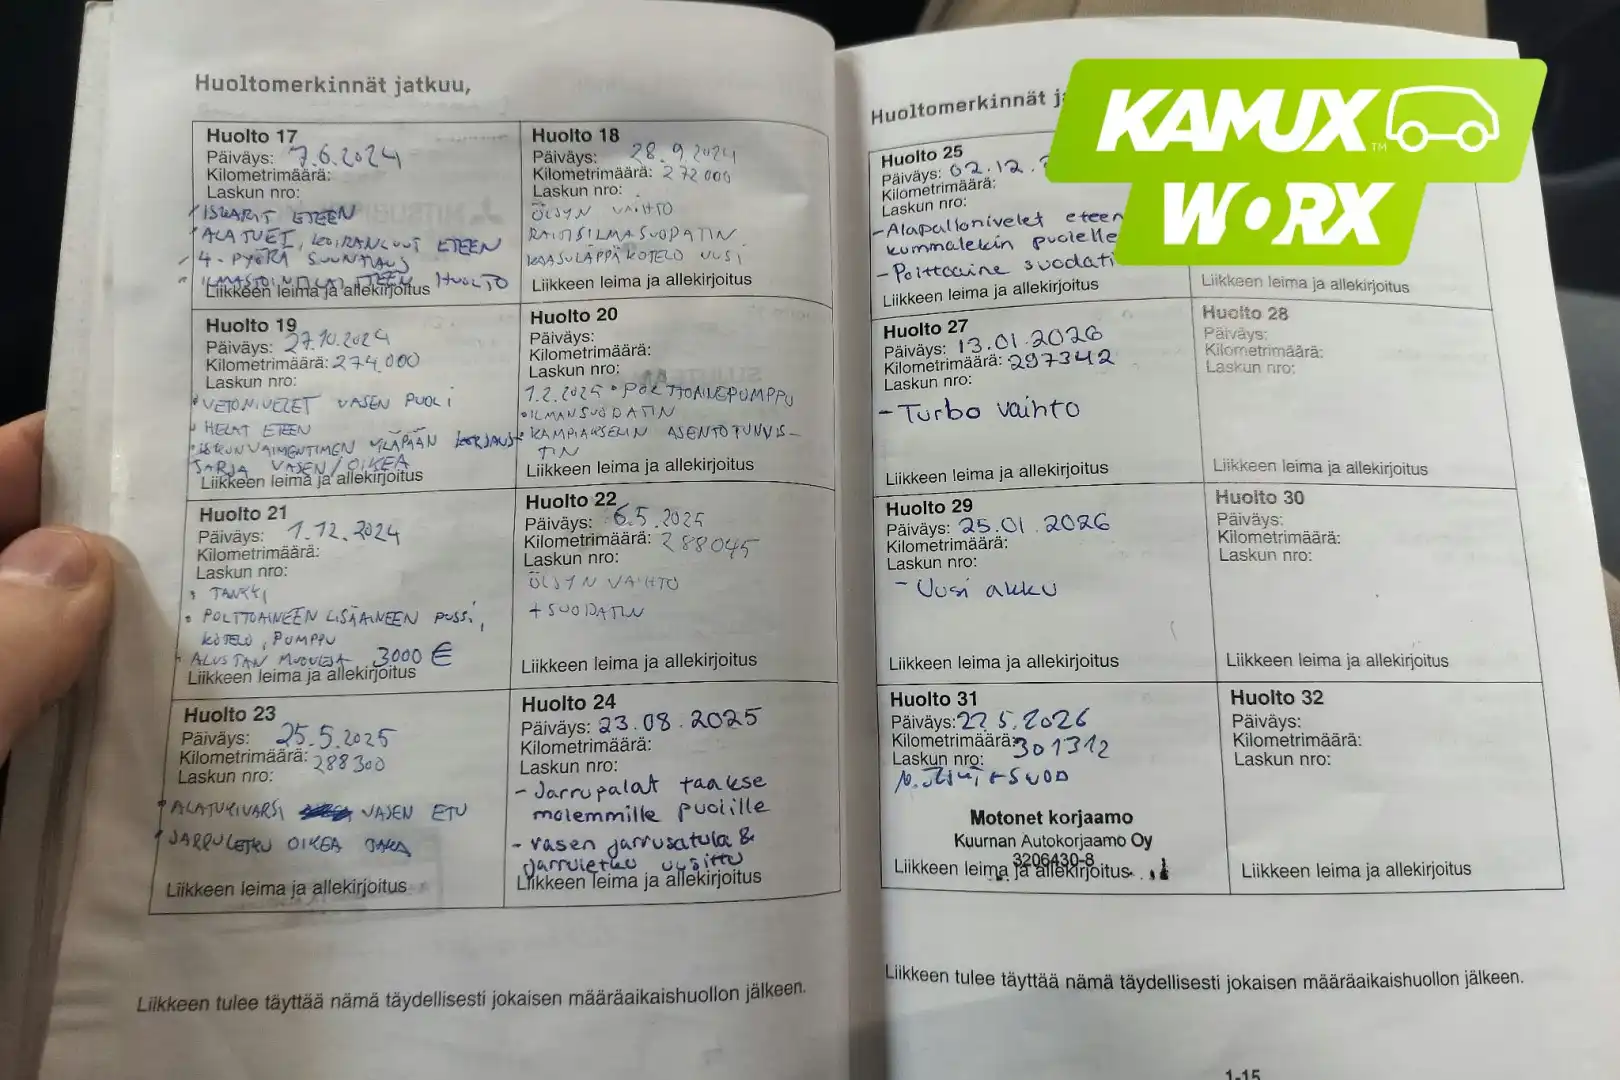 Huoltomerkinnät jatkuu,
Huolto 17
Päiväys: 7.6.2024
Kilometrimäärä:
Laskun nro:
ISKARIT ETEEN
ALATUET, KOIRANLUUT ETEEN
4-PYÖRÄ SUUNTAUS
HUOLTO
Liikkeen leima ja allekirjoitus
Huolto 18
Päiväys: 28.9.2024
Kilometrimäärä: 272000
Laskun nro:
ÖLJYN VAIHTO
RAITISILMASUODATIN
KAASULÄPPÄKOTELO UUSI
Liikkeen leima ja allekirjoitus
Huolto 19
Päiväys: 27.10.2024
Kilometrimäärä: 274000
Laskun nro:
VETONIVELET VASEN PUOLI
HELAT ETEEN
ISKUNVAIMENTIMEN YLÄPÄÄN KORJAUS-
SARJA VASEN/OIKEA
Liikkeen leima ja allekirjoitus
Huolto 20
Päiväys:
Kilometrimäärä:
Laskun nro:
1.2.2025 • POLTTOAINEPUMPPU
• ILMANSUODATIN
• KAMPIAKSELIN ASENTOTUNNIS-
TIN
Liikkeen leima ja allekirjoitus
Huolto 21
Päiväys: 1.12.2024
Kilometrimäärä:
Laskun nro:
• TANKKI
• POLTTOAINEEN LISÄAINEEN PUSSI,
KOTELO, PUMPPU
• ALUSTAN MUOVEJA 3000 €
Liikkeen leima ja allekirjoitus
Huolto 22
Päiväys: 6.5.2025
Kilometrimäärä: 288045
Laskun nro:
ÖLJYN VAIHTO
+ SUODATIN
Liikkeen leima ja allekirjoitus
Huolto 23
Päiväys: 25.5.2025
Kilometrimäärä: 288300
Laskun nro:
ALATUKIVARSI VASEN ETU
JARRULETKU OIKEA TAKA
Liikkeen leima ja allekirjoitus
Huolto 24
Päiväys: 23.08.2025
Kilometrimäärä:
Laskun nro:
- Jarrupalat taakse
molemmille puolille
- vasen jarrusatula &
jarruletku uusittu
Liikkeen leima ja allekirjoitus
Liikkeen tulee täyttää nämä täydellisesti jokaisen määräaikaishuollon jälkeen.
Huoltomerkinnät
Huolto 25
Päiväys: 02.12.
Kilometrimäärä:
Laskun nro:
- Alapallonivelet eteen
kummalekin puolelle
- Polttoaine suodati
Liikkeen leima ja allekirjoitus
Liikkeen leima ja allekirjoitus
Huolto 27
Päiväys: 13.01.2026
Kilometrimäärä: 297342
Laskun nro:
- Turbo vaihto
Liikkeen leima ja allekirjoitus
Huolto 28
Päiväys:
Kilometrimäärä:
Laskun nro:
Liikkeen leima ja allekirjoitus
Huolto 29
Päiväys: 25.01.2026
Kilometrimäärä:
Laskun nro:
- Uusi akku
Liikkeen leima ja allekirjoitus
Huolto 30
Päiväys:
Kilometrimäärä:
Laskun nro:
Liikkeen leima ja allekirjoitus
Huolto 31
Päiväys: 22.5.2026
Kilometrimäärä: 301312
Laskun nro:
Motonet korjaamo
Kuurnan Autokorjaamo Oy
3206430-8
Liikkeen leima ja allekirjoitus
Huolto 32
Päiväys:
Kilometrimäärä:
Laskun nro:
Liikkeen leima ja allekirjoitus
Liikkeen tulee täyttää nämä täydellisesti jokaisen määräaikaishuollon jälkeen.
1-15
KAMUX™
WORX